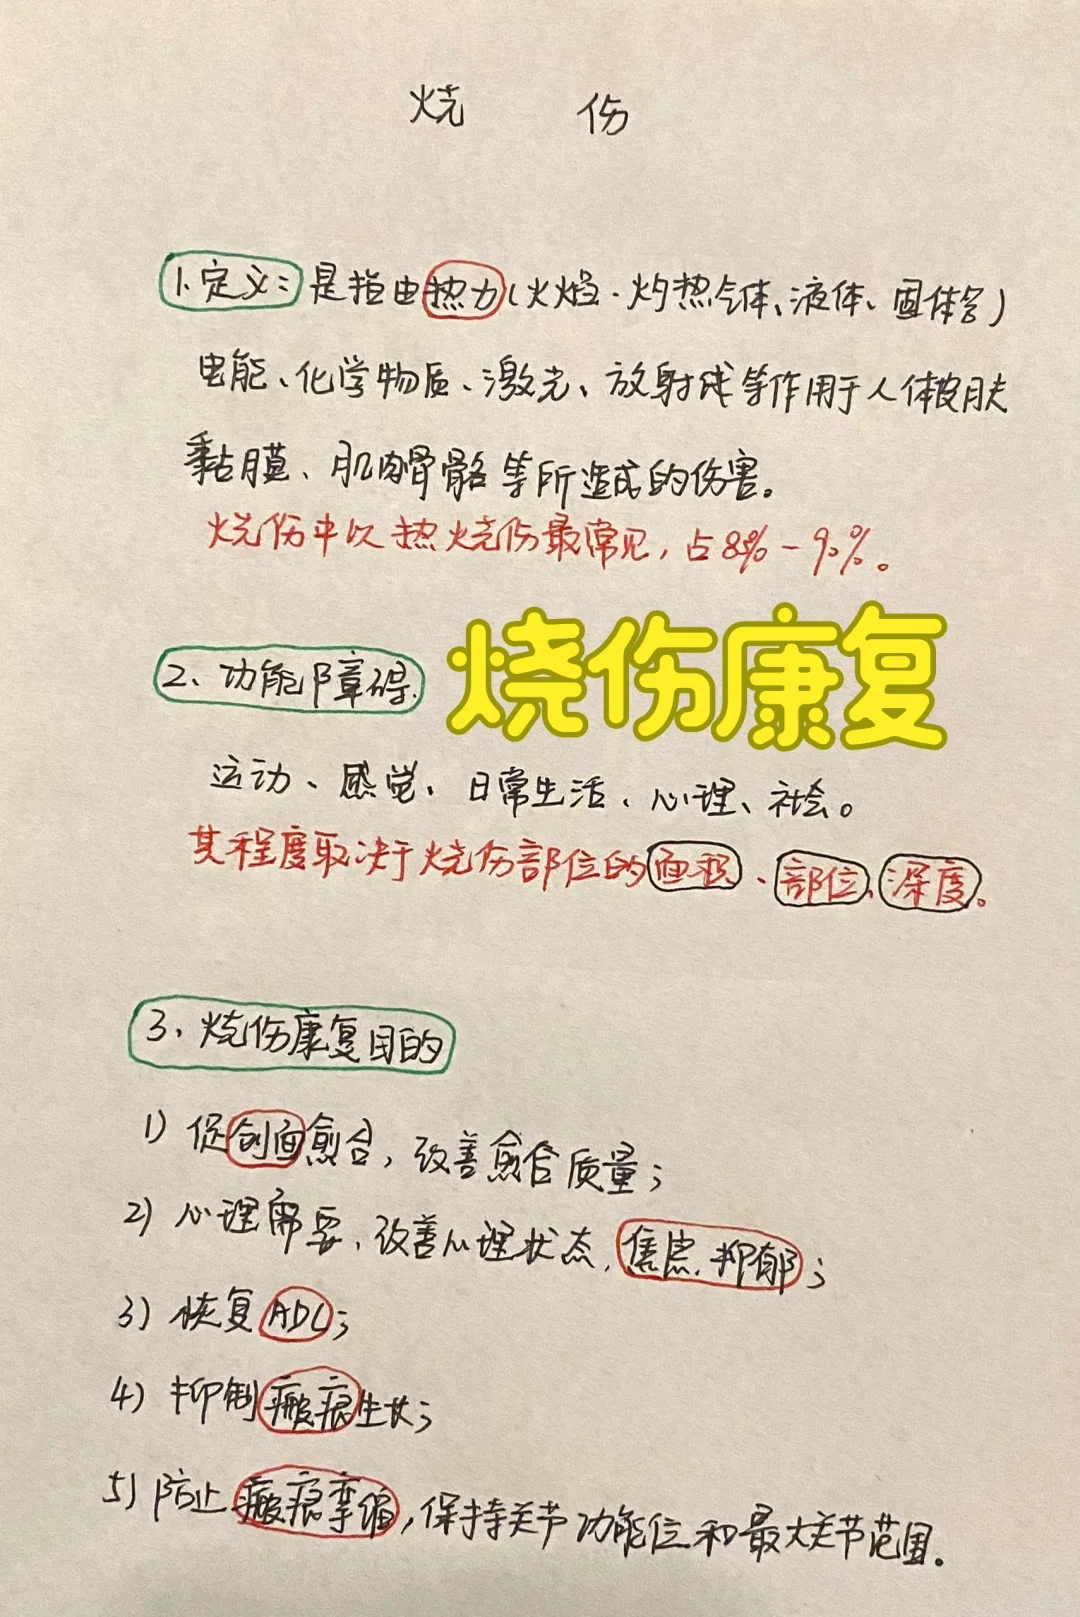 烧 伤
1.定义:是指由热力(火焰.灼热气体、液体、固体等)
电能、化学物质、激光、放射线等作用于人体皮肤
黏膜、肌肉骨骼等所造成的伤害。
烧伤中以热烧伤最常见,占80%-90%。
2、功能障碍.
烧伤康复
运动、感觉、日常生活、心理、社会。
其程度取决于烧伤部位的面积、部位、深度。
3、烧伤康复目的
1)促创面愈合,改善愈合质量;
2)心理需要、改善心理状态,焦虑.抑郁;
3)恢复ADL;
4)抑制瘢痕生长;
5)防止瘢痕挛缩,保持关节功能位和最大关节范围.